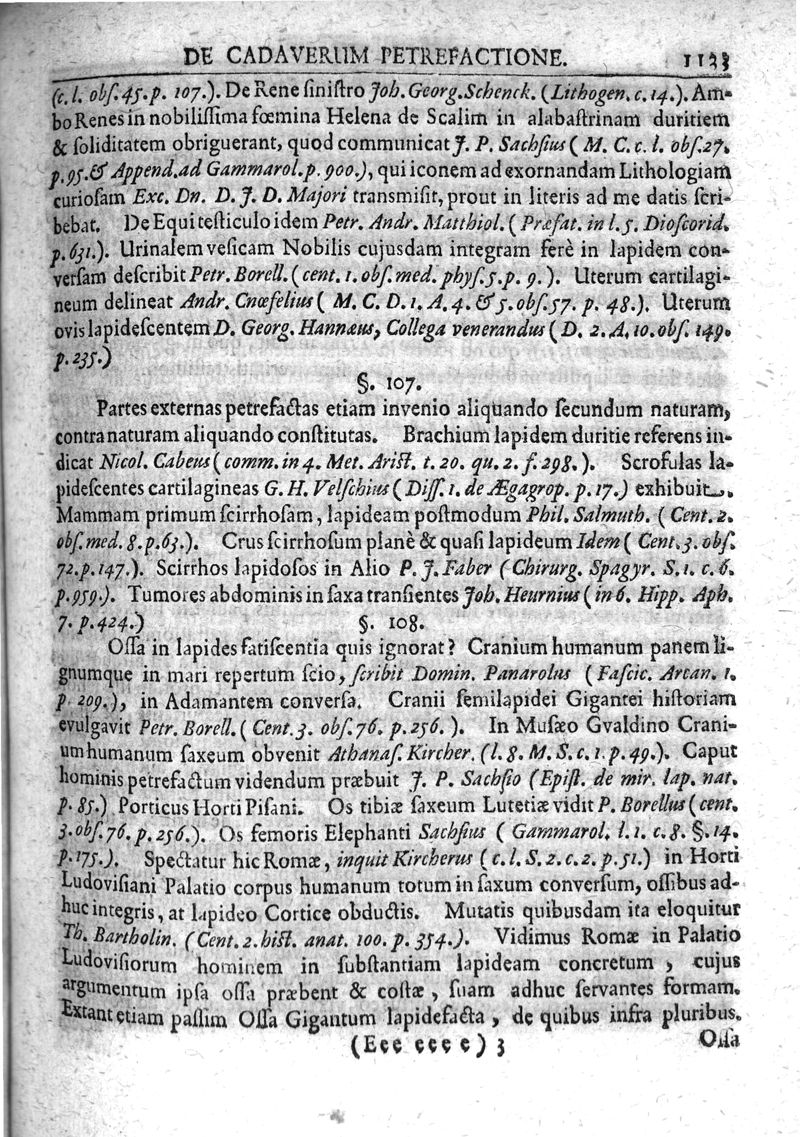 DE CADAVERUM PETREFACTIONE. 1133
(c. l. obſ. 45. p. 107.). De Rene ſiniſtro Joh. Georg. Schenck. (Lithogen. c. 14.). Am-
bo Renes in nobiliſſima fœmina Helena de Scalim in alabaſtrinam duritiem
& ſoliditatem obriguerant, quod communicat J. P. Sachſius (M. C. c. l. obſ. 27.
p. 95. & Append. ad Gammarol. p. 900.), qui iconem ad exornandam Lithologiam
curioſam Exc. Dn. D. J. D. Majori transmiſit, prout in literis ad me datis ſcri-
bebat. De Equi teſticulo idem Petr. Andr. Matthiol. (Præfat. in l. 5. Dioſcorid.
p. 631.). Urinalem veſicam Nobilis cujusdam integram ferè in lapidem con-
verſam deſcribit Petr. Borell. (cent. 1. obſ. med. phyſ. 5. p. 9.). Uterum cartilagi-
neum delineat Andr. Cnœfelius (M. C. D. 1. A. 4. & 5. obſ. 57. p. 48.). Uterum
ovis lapideſcentem D. Georg. Hannæus, Collega venerandus (D. 2. A. 10. obſ. 149.
p. 235.)
§. 107.
Partes externas petrefactas etiam invenio aliquando ſecundum naturam,
contra naturam aliquando conſtitutas. Brachium lapidem duritie referens in-
dicat Nicol. Cabeus (comm. in 4. Met. Ariſt. t. 20. qu. 2. f. 298.). Scrofulas la-
pideſcentes cartilagineas G. H. Velſchius (Diſſ. 1. de Ægagrop. p. 17.) exhibuit.
Mammam primum ſcirrhoſam, lapideam poſtmodum Phil. Salmuth. (Cent. 2.
obſ. med. 8. p. 63.). Crus ſcirrhoſum planè & quaſi lapideum Idem (Cent. 3. obſ.
72. p. 147.). Scirrhos lapidoſos in Alio P. J. Faber (Chirurg. Spagyr. S. 1. c. 6.
p. 959.). Tumores abdominis in ſaxa tranſientes Joh. Heurnius (in 6. Hipp. Aph.
7. p. 424.) §. 108.
Oſſa in lapides fatiſcentia quis ignorat? Cranium humanum panem li-
gnumque in mari repertum ſcio, ſcribit Domin. Panarolus (Faſcic. Arcan. 1.
p. 209.), in Adamantem converſa. Cranii ſemilapidei Gigantei hiſtoriam
evulgavit Petr. Borell. (Cent. 3. obſ. 76. p. 256.). In Muſæo Gvaldino Crani-
um humanum ſaxeum obvenit Athanaſ. Kircher. (l. 8. M. S. c. 1. p. 49.). Caput
hominis petrefactum videndum præbuit J. P. Sachſio (Epiſt. de mir. lap. nat.
p. 85.) Porticus Horti Piſani. Os tibiæ ſaxeum Lutetiæ vidit P. Borellus (cent.
3. obſ. 76. p. 256.). Os femoris Elephanti Sachſius (Gammarol. l. 1. c. 8. §. 14.
p. 175.). Spectatur hic Romæ, inquit Kircherus (c. l. S. 2. c. 2. p. 51.) in Horti
Ludoviſiani Palatio corpus humanum totum in ſaxum converſum, oſſibus ad-
huc integris, at lapideo Cortice obductis. Mutatis quibusdam ita eloquitur
Th. Bartholin. (Cent. 2. hiſt. anat. 100. p. 354.). Vidimus Romæ in Palatio
Ludoviſiorum hominem in ſubſtantiam lapideam concretum, cujus
argumentum ipſa oſſa præbent & coſtæ, ſuam adhuc ſervantes formam.
Extant etiam paſſim Oſſa Gigantum lapidefacta, de quibus infra pluribus.
(Eee eee e) 3 Oſſa